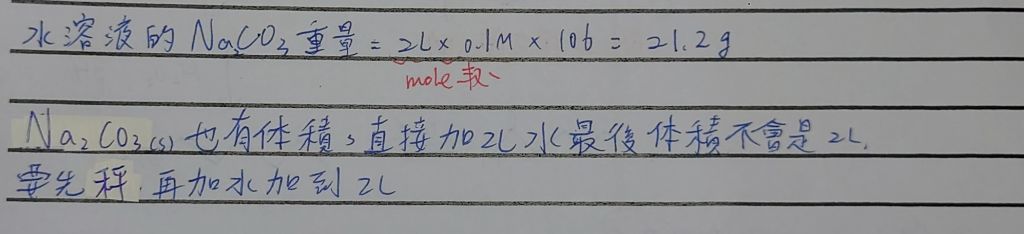 水溶液的 Na₂CO₃ 重量 = 2L × 0.1M × 106 = 21.2g
mole 数
Na₂CO₃(s) 也有体積,直接加2L水最後体積不會是2L.
要先秤.再加水加到2L